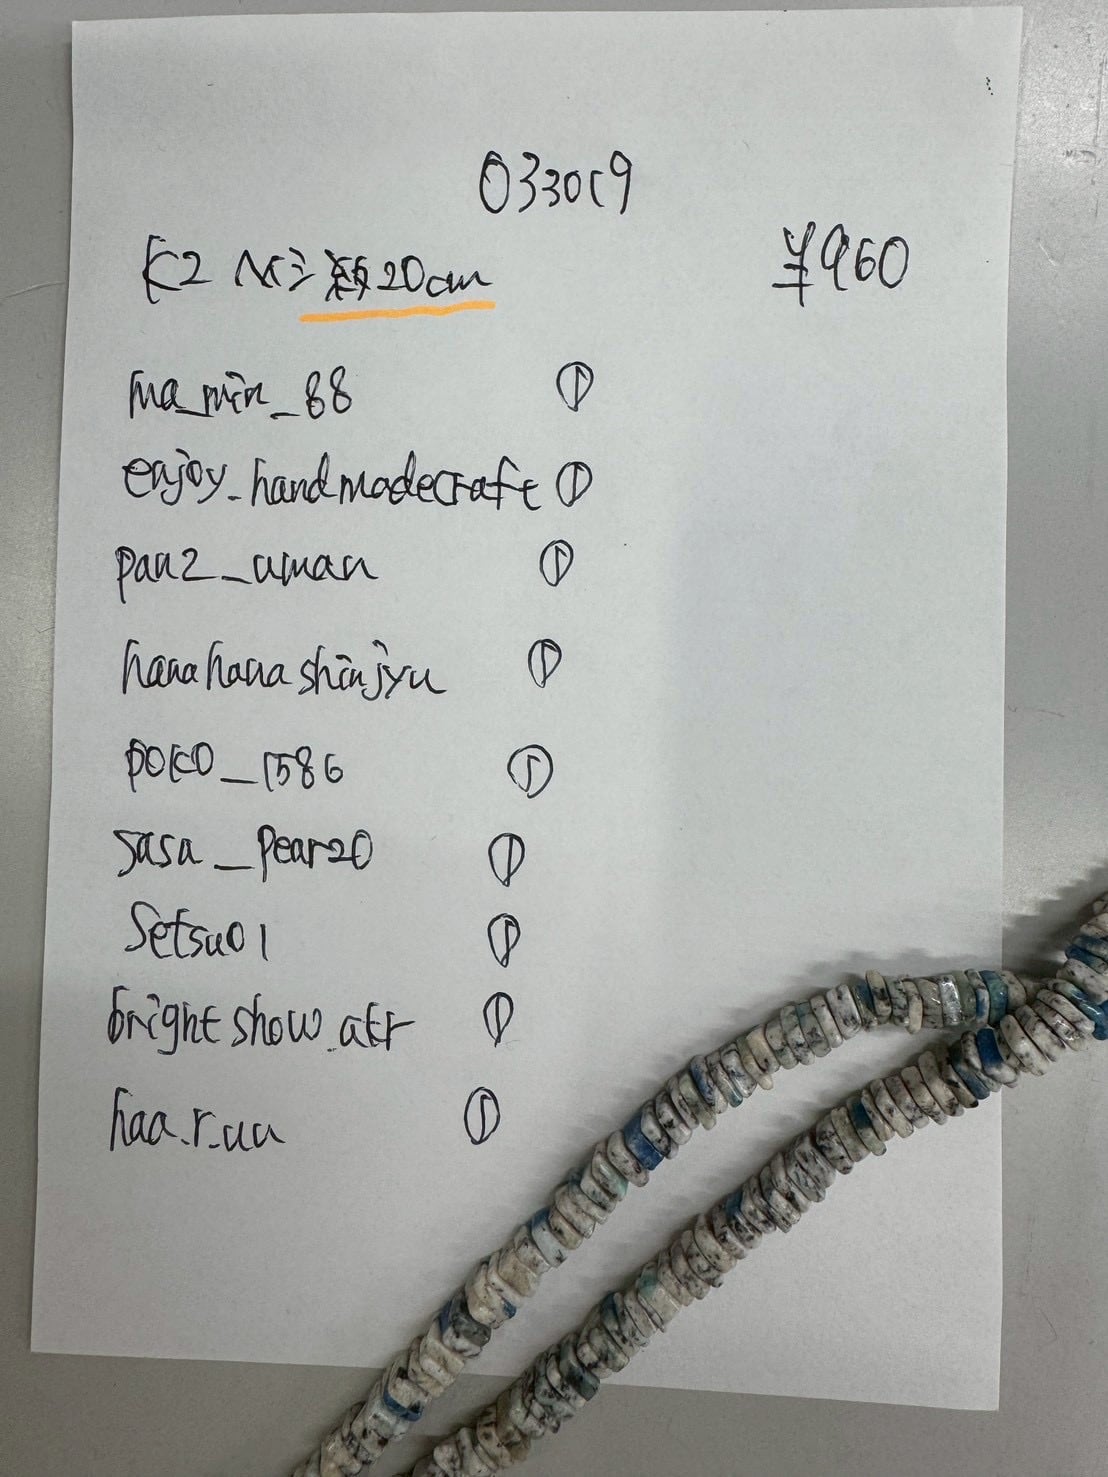 033019
¥960
K2 20cm
ma_min_88 ①
enjoy_handmadecraft ①
pan2_uman ①
hanahanashinjyu ①
poko_1586 ①
sasa_pearl20 ①
Setsu01 ①
brightshow_atr ①
haa_r_uu ①